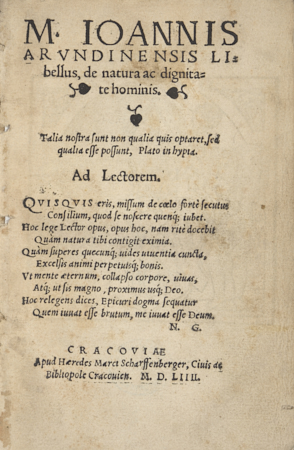 M. IOANNIS
ARVNDINENSIS LI-
bellus, de natura ac dignita-
te hominis.
Talia nostra sunt non qualia quis optaret, sed
qualia esse possunt, Plato in hypia.
Ad Lectorem.
QVISQVIS eris, missum de cœlo fortè secutus
Consilium, quod se noscere quenq; iubet.
Hoc lege Lector opus, opus hoc, nam ritè docebit
Quàm natura tibi contigit eximia.
Quàm superes quecunq; uides uiuentia cuncta,
Excelsis animi perpetuisq; bonis.
Vt mente æternum, collapso corpore, uiuas,
Atq; ut sis magno, proximus usq; Deo.
Hoc relegens dices, Epicuri dogma sequatur
Quem iuuat esse brutum, me iuuat esse Deum.
N. G.
CRACOVIAE
Apud Hæredes Marci Scharffenberger, Ciuis ac
Bibliopole Cracouien. M. D. LIIII.